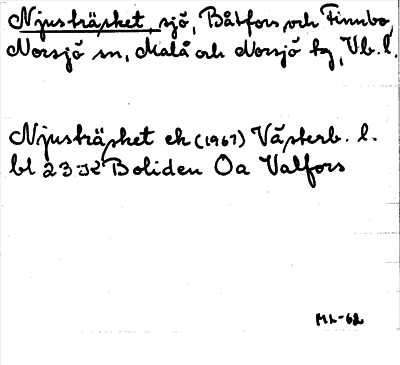 Njusträsket, sjö, Båtfors och Finnbo,
Norsjö sn, Malå och Norsjö tg, Vb. l.
Njusträsket ek (1967) Västerb. l.
bl 23 J-K Boliden Öa Valfors
ML-62